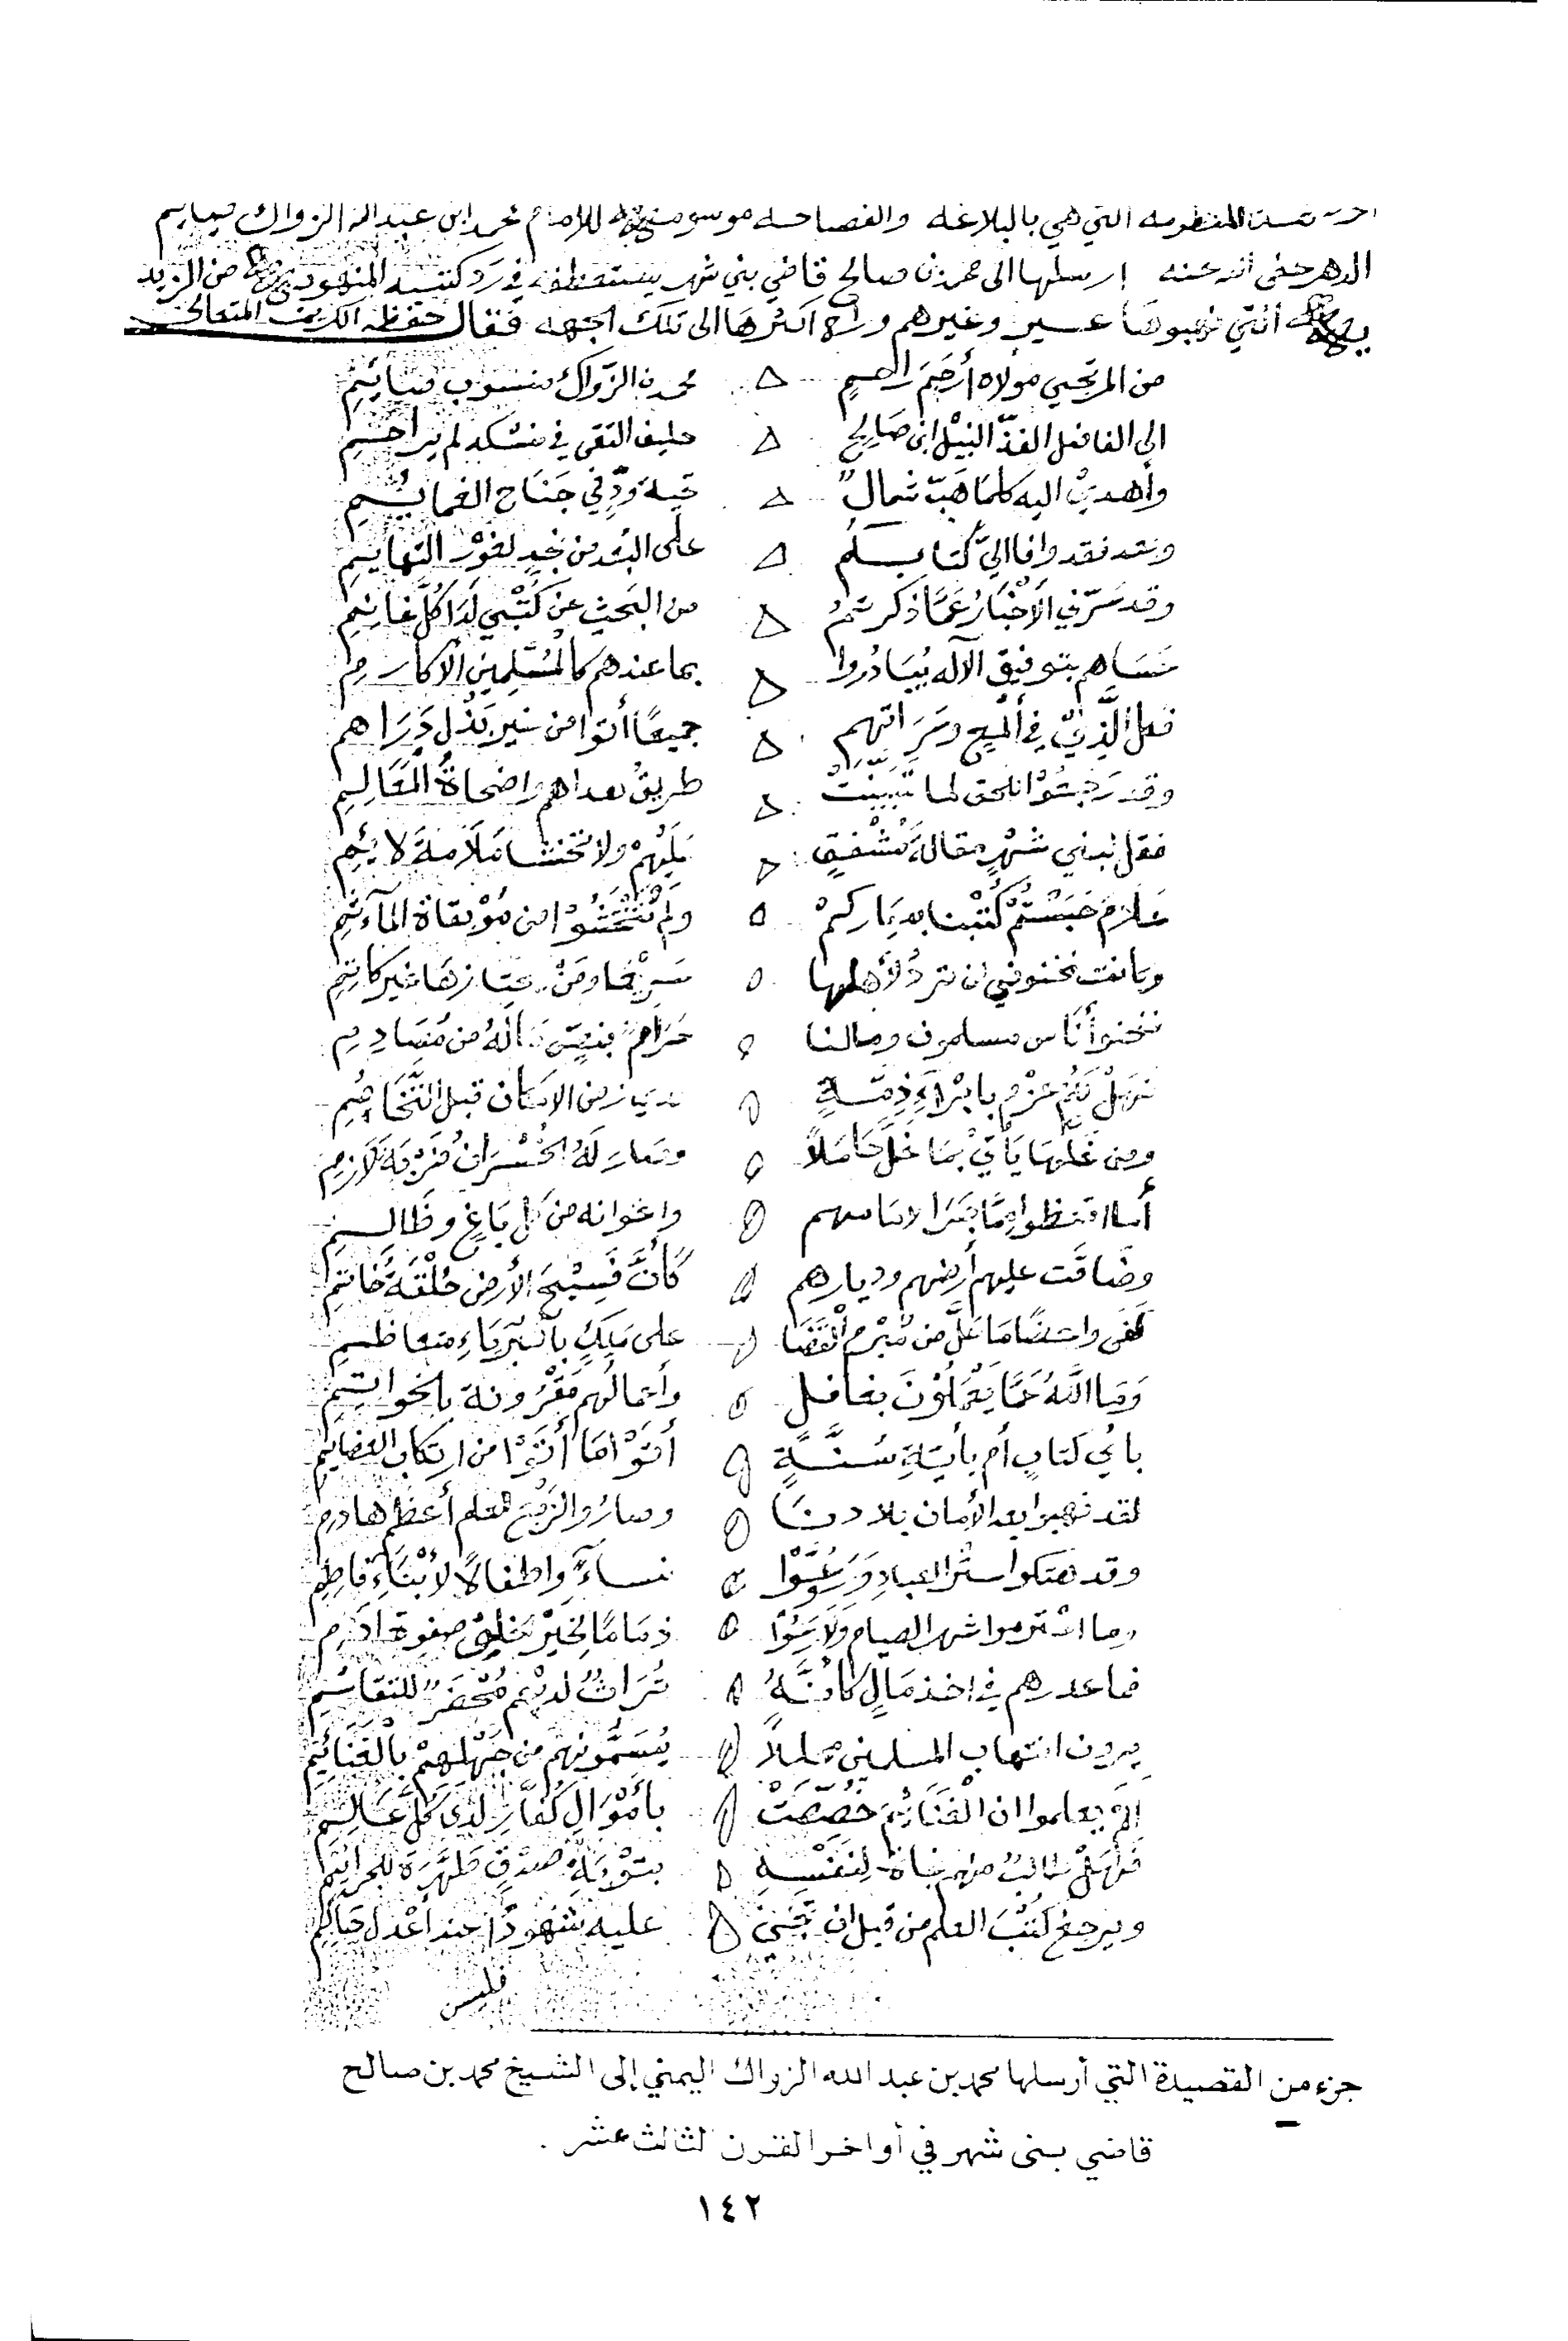 المنظومه التي هي بالبلاغه والفصاحه موسومه للامام محمد ابن عبدالله الزواك
الدهر عفى الله عنه ارسلها الى محمد بن صالح قاضي بني شهر يستعطفه في رد كتبه المنهوبه من الزيديه
التي نهبوها عسير وغيرهم وراح اكثرها الى تلك الجهه فقال حفظه الكريم المتعالي
من المرتجي مولاه أرحم راحمٍ محمد الزواك منسوب صائمِ
الى الفاضل الفذّ النبيل ابن صَالِحٍ حليف التقى في نسكه لم يزاحمِ
وأهدي اليه كلما هَبّ شمالٌ تحية ودٍّ في جناح الغمائمِ
وبعد فقد وافا اليّ كتابكم على البعد من نجدٍ لغور التهايمِ
وقد سَرّني الأَخْبَارُ عَمَّا ذكرتمُ من البحث عن كُتْبي لدَا كلّ غانمِ
عَسَاهم بتوفيق الآله يُبَادُروا بما عندهم كالمُسْلمِين الأكارمِ
فعل الَّذِيْ في ألمع وسَرَاتهم جميعًا أتوا من غير بَذْل دَرَاهم
وقد رَجَعُوْا للحق لما تَبَيَّنَتْ طريقُ هداهم واضحاةُ المَعَالِمِ
فقل لبني شَهْرٍ مقالة مُشْفِقٍ عَلَيْهِمْ ولا تخشا مَلَامَةَ لائِمِ
عَلَامَ حَبَسْتُمْ كُتْبنا بديَاركمْ ولم تَخْتَشُوْا من مُوْبقاة المآءثمِ
وما نعتموني ان تردُ لأهلها سَرِيْعًا ومَنْ يمتازهَا غير كاتِمِ
فنحنوا أُنَاس مسلمون ومالنا حَرَامٌ بنصٍّ مَا لَهُ من مُصَادِمِ
فهل لكُمُ عزْم بابْرَآءِ ذِمّةٍ لدى زمن الامكان قبل التَّخَاصُمِ
ومن غلّهَا يَأتيْ بمَا غلَّ حَامِلاً وصار لَهُ الخُسْرَانُ ضَرْبَة لَازِمِ
أما اتعظوا مِمَّا جَرَا لامامهم واعوانه من كل بَاغٍ وظَالِمِ
وضاقت عليهم أرضهم وديارهم كأنَّ فَسِيْحَ الأرض حَلْقَةُ خَاتمِ
كفى واعضًا مَا حَلَّ من مُبْرم الْقَضَا على مَلِكٍ بالكبريَاءِ متعاظمِ
وَمَا اللهُ عَمَّا يَعْمَلُوْنَ بغافلٍ وأعمالهم مَقْرُونة بالخواتِمِ
بأي كتابٍ أم بأيَةِ سُنَّةٍ أتَوْا مَا أتَوْا من ارتكاب العضايمِ
لقد نهبوا بعد الأمان بلادنَا وصارُوا لربْع العلم أعظم هادمِ
وقد هتكوا ستْرَ العبادِ وَرَوَّعُوْا نساءً واطفالاً لأبْنَاءِ فاطِمِ
وما احترموا شهر الصيام وَلَا رَعَوْا ذمَامًا لخَيْر الخلق صفوة آدَمِ
فما عدرهم في اخذ مَالٍ كأنَّهُ تُرَاثٌ لديْهم مُحْضَرٌ للتقاسُمِ
يرون انتهاب المسلمين محللاً يُسَمُّونهُم من جَهْلهِمْ بالْغَنَائِمِ
الم يعلموا ان الْغَنَائِمَ خُصِّصَتْ بأمْوَالِ كُفّارٍ لدى كلّ عَالِمِ
فَهَلْ طالبٌ منهم نجاة لِنَفْسِهِ بتَوْبَةِ صِدْقٍ طَهَّرَة للجرائمِ
ويرجعُ كُتْبَ العلم من قبل ان تجيْ عليه شهودًا عند أعْدَل حَاكِمِ
فليس
جزء من القصيدة التي أرسلها محمد بن عبد الله الزواك اليمني إلى الشيخ محمد بن صالح
قاضي بني شهر في أواخر القرن الثالث عشر .
١٤٢